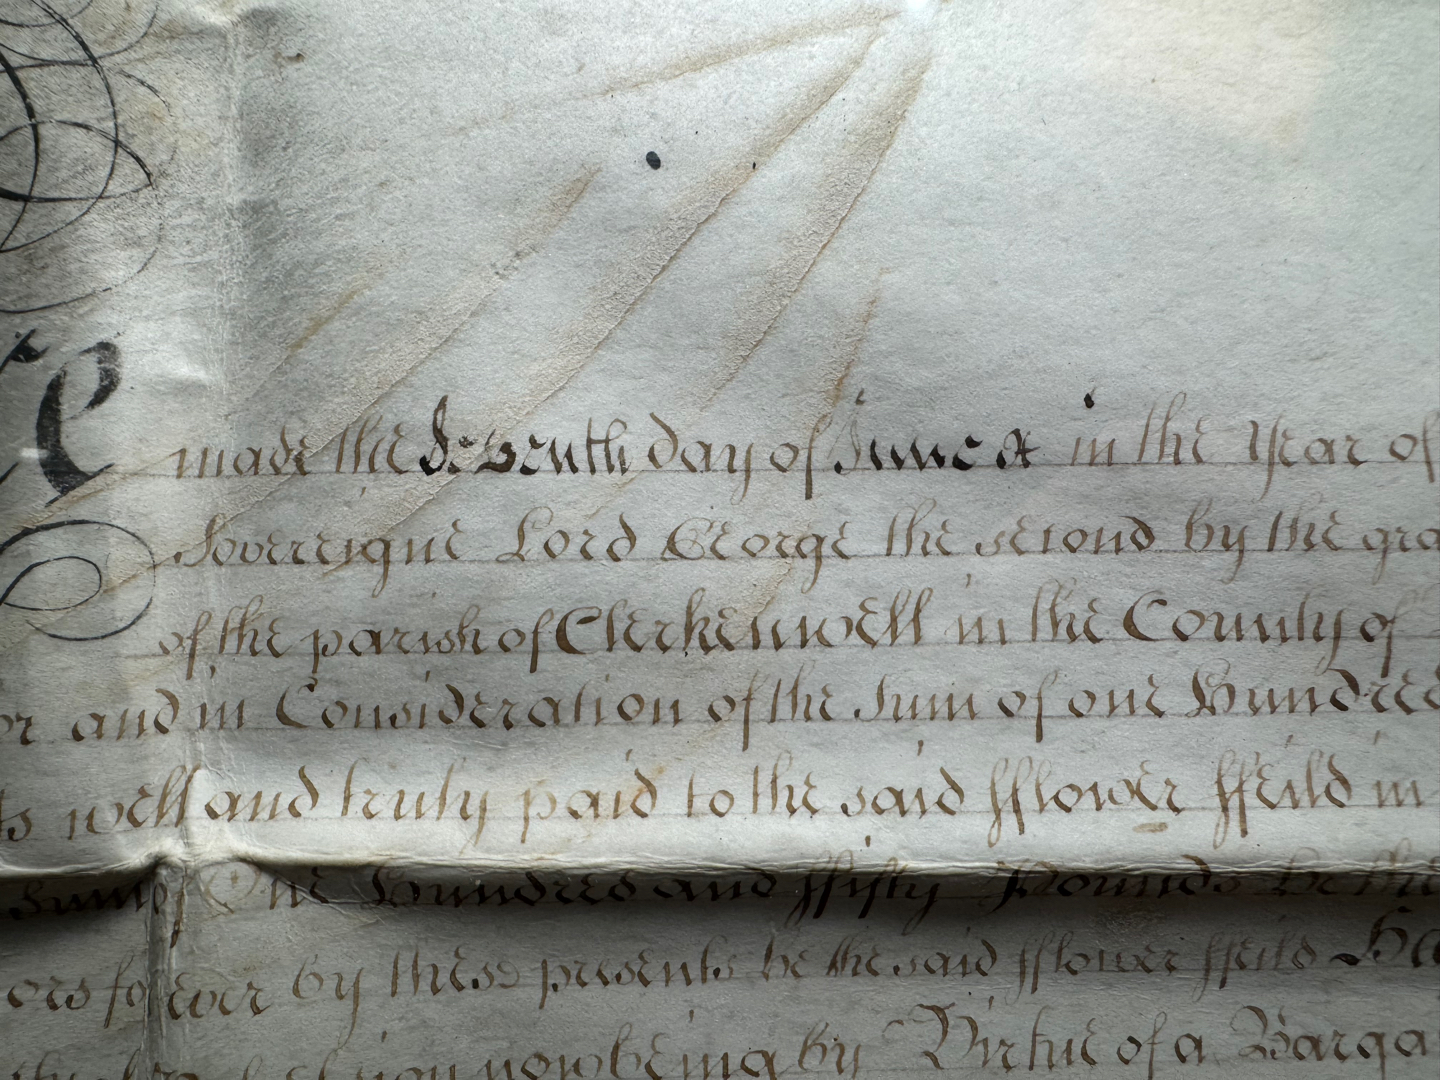 made the Seventh day of June in the Year of
Sovereigne Lord George the second by the gra
of the parish of Clerkenwell in the County of
or and in Consideration of the Sum of one Hundred
ts well and truly paid to the said fflower ffeild in
Summe One Hundred and ffifty Pounds he the
ors forever by these presents he the said fflower ffeild Ha
now being by Virtue of a Barga